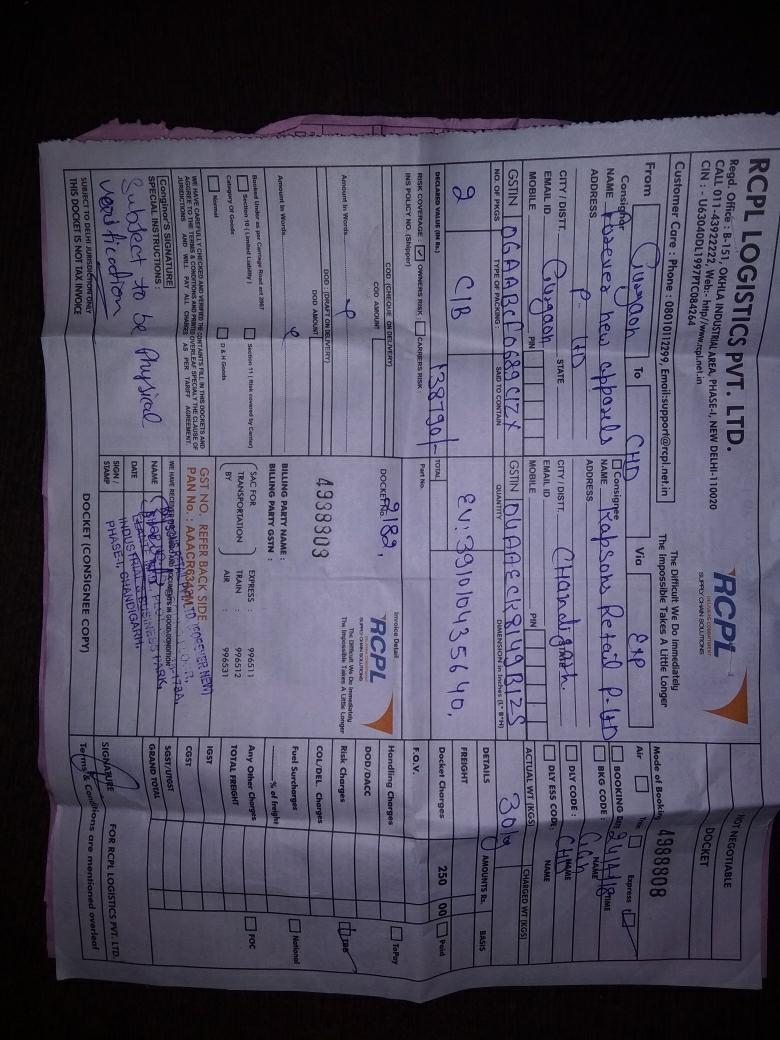 RCPL LOGISTICS PVT. LTD.
Regd. Office : B-151, OKHLA INDUSTRIAL AREA, PHASE-I, NEW DELHI-110020
CALL 011-43922222, Web:- http//www.rcpl.net.in
CIN : - U63040DL1997PTC084264
Customer Care : Phone : 08010112299, Email:support@rcpl.net.in
RCPL
DELIVERING COMMITMENT
SUPPLY CHAIN SOLUTIONS
The Difficult We Do Immediately
The Impossible Takes A Little Longer
NOT NEGOTIABLE
DOCKET
4988808
From Gurgaon To CHD Via Exp
Mode of Booking
Air Express
Consignor
NAME Forever new apparels
ADDRESS P. LTD
CITY / DISTT. Gurgaon STATE
EMAIL ID PIN
MOBILE
GSTIN
Consignee
NAME Kapsons Retail P. LTD
ADDRESS
CITY / DISTT. CHandigarh
EMAIL ID PIN
MOBILE
GSTIN
BOOKING DT. TIME
BKG CODE : NAME
DLY CODE : CHD NAME
DLY ESS CODE: NAME
NO. OF PKGS TYPE OF PACKING SAID TO CONTAIN QUANTITY DIMENSION in Inches (L* B*H) ACTUAL WT (KGS) CHARGED WT (KGS)
2 C/B
DETAILS AMOUNTS Rs. BASIS
FREIGHT
DECLARED VALUE (IN Rs.) 138790/- TOTAL
Docket Charges 250 00 Paid
RISK COVERAGE OWNERS RISK CARRIERS RISK
INS POLICY NO. (Shipper) Part No.
F.O.V.
Handling Charges ToPay
COD (CHEQUE ON DELIVERY)
COD AMOUNT
DOCKET No.
Invoice Detail
DOD/DACC
Amount in Words
Risk Charges TBB
COL/DEL. Charges
DOD : (DRAFT ON DELIVERY)
DOD AMOUNT
4988808
RCPL
SUPPLY CHAIN SOLUTIONS
The Difficult We Do Immediately
The Impossible Takes A Little Longer
Amount in Words
Fuel Surcharges National
% of freight
BILLING PARTY NAME :
BILLING PARTY GSTN :
Booked Under as per Carriage Road act 2007
Section 10 ( Limited Liability ) Section 11 ( Risk covered by Carrier)
Category Of Goods
Normal D & H Goods
SAC FOR TRANSPORTATION BY
EXPRESS : 996511
TRAIN : 996512
AIR : 996531
Any Other Charges FOC
TOTAL FREIGHT
IGST
CGST
SGST/UTGST
GRAND TOTAL
GST NO. REFER BACK SIDE
WE HAVE CARFULLY CHECKED AND VERIFIED THE CONTAINTS FILL IN THIS DOCKETS AND
AGGREE TO THE TERMS & CONDITIONS AND PRINTED OVERLEAF SPECIALY THE CLAUSE OF
JURISDICTIONS AND WILL PAY ALL CHARGES AS PER TARIFF AGREEMENT.
Congnor's SIGNATURE
SPECIAL INSTRUCTIONS :
Subject to be Physical
verification
NAME
DATE
SIGN / STAMP
INDUSTRIAL & BUSINESS PARK,
PHASE-I, CHANDIGARH.
SIGNATURE FOR RCPL LOGISTICS PVT. LTD.
SUBJECT TO DELHI JURISDICTION ONLY
THIS DOCKET IS NOT TAX INVOICE
DOCKET (CONSIGNEE COPY)
Terms & Conditions are mentioned overleaf